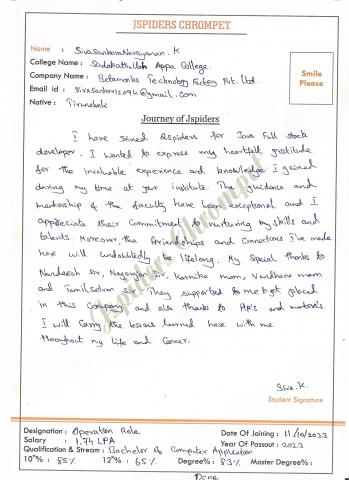 JSPIDERS CHROMPET
Name : SivaSankaraNarayanan.K
College Name : Sadakathullah Appa College.
Company Name : Betamonks Technology Factory Pvt. Ltd.
Email id : sivasankar12094@gmail.com
Native : Tirunelveli
Smile
Please
Journey of Jspiders
I have joined Qspiders for Java Full stack
developer. I wanted to express my heartfelt gratitude
for the invaluable experience and knowledge I gained
during my time at your institute. The guidance and
mentorship of the faculty have been exceptional and I
appreciate their Commitment to nurturing my skills and
talents. Moreover, the friendships and Connections I've made
here will undoubtedly be lifelong. My Special thanks to
Nandeesh sir, Nagarajan Sir, Karnika mam, Vandhana mam
and Tamilselvan sir. They supported to me to get placed
in this Company and also thanks to Hr's and mentor's.
I will Carry the lessons learned here with me
throughout my life and Career.
Jspiders Chrompet
Siva.K
Student Signature
Designation : Operation Role
Date Of Joining : 11/10/2023
Salary : 1.74 LPA
Year Of Passout : 2023
Qualification & Stream : Bachelor of Computer Application
10th% : 85% 12th% : 65% Degree% : 83% Master Degree% :
Done